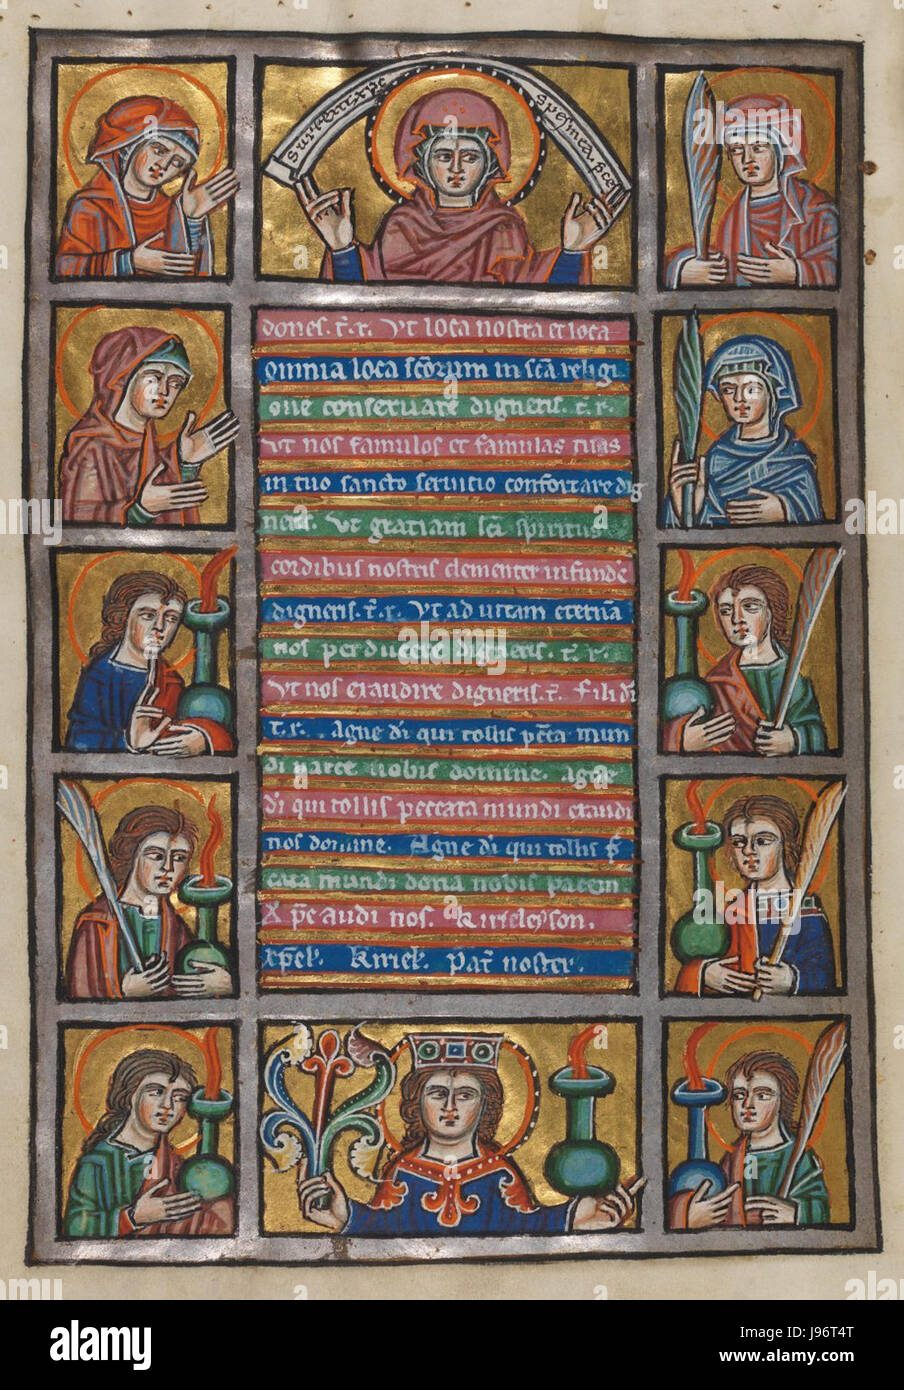 dones. t. r. Ut loca nostra et loca
omnia loca scorum in sca religi
one conservare digneris. t. r.
Ut nos famulos et famulas tuas
in tuo sancto servitio confortare dig
neris. Ut gratiam sci spiritus
cordibus nostris clementer infunde
digneris. t. r. Ut ad vitam eternā
nos perducere digneris. t. r.
Ut nos exaudire digneris. t. Fili di
t. r. Agne di qui tollis pcta mun
di parce nobis domine. Agne
di qui tollis peccata mundi exaudi
nos domine. Agne di qui tollis p
cata mundi dona nobis pacem
Xpe audi nos. Kirieleyson.
xpel. Kriel. Pat noster.
alamy
Image ID: J96T4T
www.alamy.com